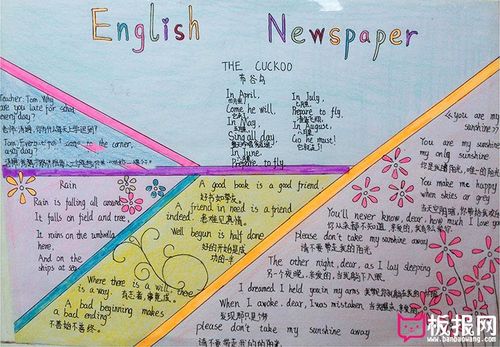 English Newspaper
THE CUCKOO
布谷鸟
In April,
Come he will,
In May,
Sing all day
In June
Prepare to fly
In July,
Prepare to fly.
In August,
Go he must!
Teacher: Tom, Why
are you late for school
every day?
Tom: Every time I come to the corner,
Rain
Rain is falling all around
It falls on field and tree,
It rains on the umbrella
here,
And on the
ships at sea
A good book is a good friend.
好书如挚友。
A friend in need is a friend
indeed.
患难见真情。
Well begun is half done
好的开始是成
功的一半
Where there is a will, there
is a way.
有志者,事竟成。
A bad beginning makes
a bad ending
不善始不善终。
you are my
sunshine
You are my sunshine
my only sunshine
You make me happy
when skies are grey
You'll never know, dear, how much I love you
please don't take my sunshine away
请不要带走我的阳光
The other night, dear, as I lay sleeping
另一个夜晚,亲爱的,当我躺下入眠
I dreamed I held you in my arms
When I awoke, dear, I was mistaken
please don't take my sunshine away
请不要带走我的阳光
板报网
www.banbaowang.com